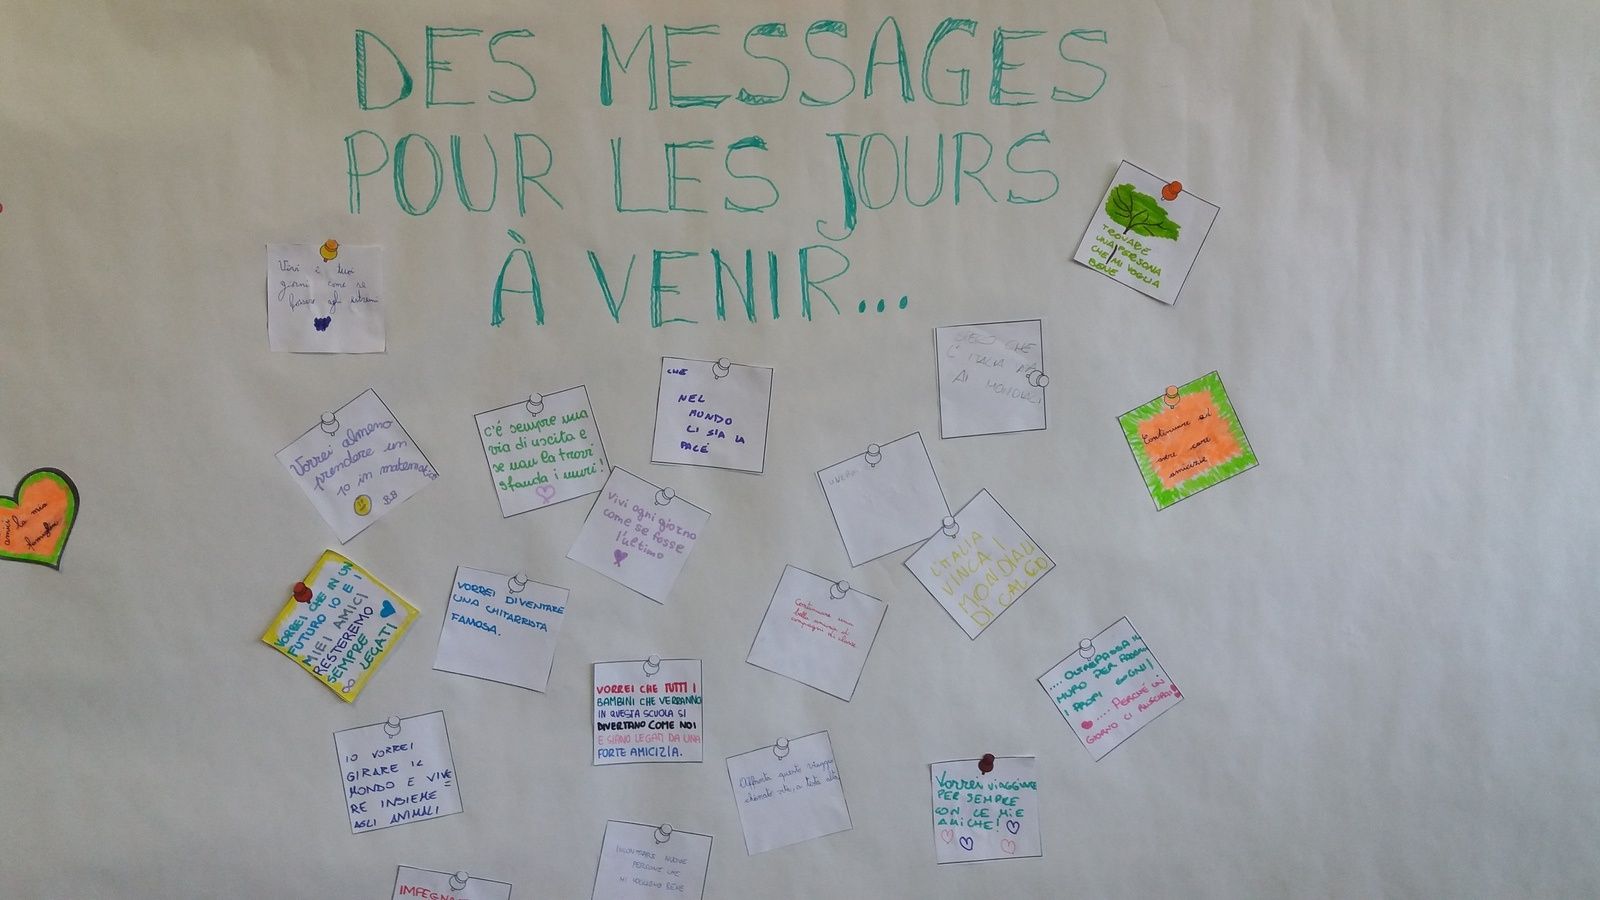 DES MESSAGES
POUR LES JOURS
À VENIR...
Vivi i tuoi
giorni come se
fossero gli
TROVARE
UNA PERSONA
CHE MI VOGLIA
BENE
Vorrei almeno
prendere un
10 in matematica
BB
C'é sempre una
via di uscita e
se non la trovi
sfonda i muri!
CHE
NEL
MONDO
CI SIA LA
PACE
CHE
L'ITALIA
AI MONDIALI
Continuare
amicizie
amici
la mia
famiglia
Vivi ogni giorno
come se fosse
l'ultimo
L'ITALIA
VINCA I
MONDIALI
DI CALCIO
VORREI CHE IN UN
FUTURO IO E I
MIEI AMICI
RESTEREMO
SEMPRE
LEGATI
VORREI DIVENTARE
UNA CHITARRISTA
FAMOSA.
Continuare
compagni di classe
.... OLTREPASSA IL
MURO PER
I PROPI SOGNI!
.... PERCHÉ UN
GIORNO CI RIUSCIRAI!
VORREI CHE TUTTI I
BAMBINI CHE VERRANNO
IN QUESTA SCUOLA SI
DIVERTANO COME NOI
E SIANO LEGATI DA UNA
FORTE AMICIZIA.
IO VORREI
GIRARE IL
MONDO E VIVE
RE INSIEME =
AGLI ANIMALI
Affronta questo viaggio
chiamato vita, a testa alta
Vorrei viaggiare
PER SEMPRE
CON LE MIE
AMICHE!
INCONTRARE NUOVE
PERSONE CHE
MI VOGLIONO BENE